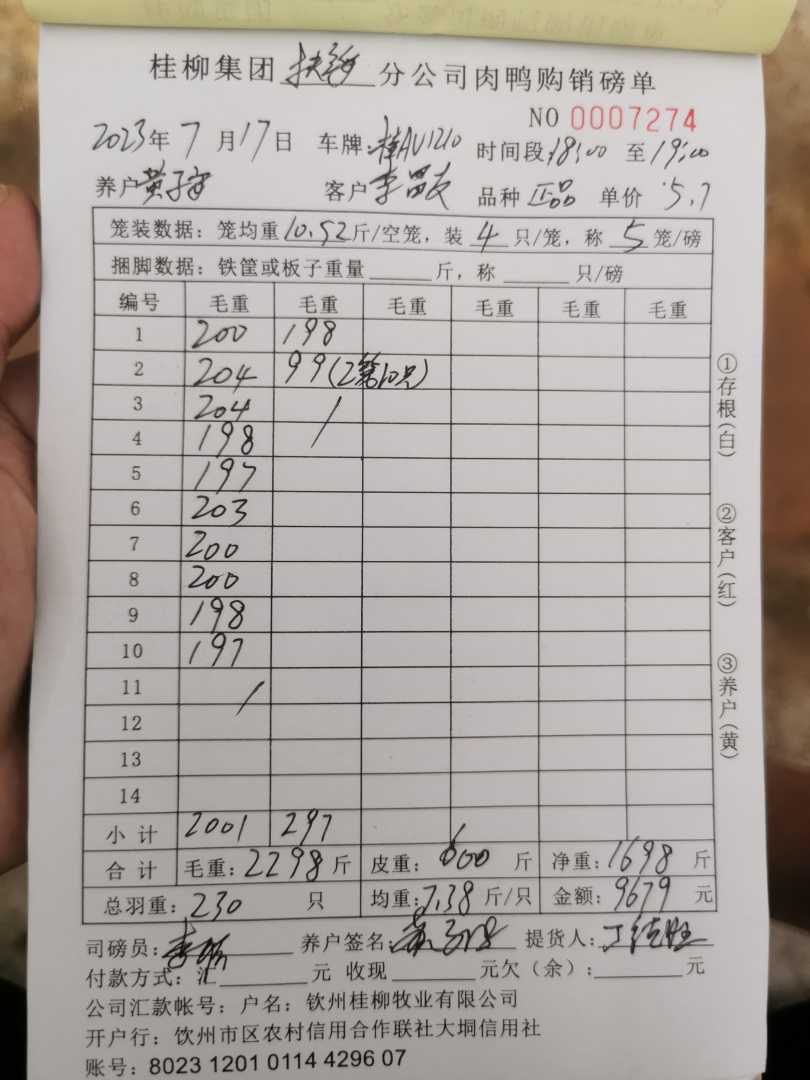 桂柳集团扶绥分公司肉鸭购销磅单
NO 0007274
2023年7月17日 车牌:桂AU1210 时间段18:00至19:00
养户 客户 品种 正品 单价 5.7
笼装数据：笼均重10.52斤/空笼，装4只/笼，称5笼/磅
捆脚数据：铁筐或板子重量______斤，称______只/磅
编号 毛重 毛重 毛重 毛重 毛重 毛重
1 200 198
2 204 99(2笼10只)
3 204 /
4 198
5 197
6 203
7 200
8 200
9 198
10 197
11 /
12
13
14
小计 2001 297
合计 毛重:2298斤 皮重:600斤 净重:1698斤
总羽重:230只 均重:7.38斤/只 金额:9679元
司磅员: 养户签名: 提货人:
付款方式：汇______元 收现______元欠（余）:______元
公司汇款帐号：户名：钦州桂柳牧业有限公司
开户行：钦州市区农村信用合作联社大垌信用社
账号：8023 1201 0114 4296 07
①存根(白)
②客户(红)
③养户(黄)